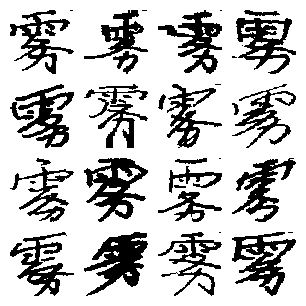 雾雾雾雾
雾雾雾雾
雾雾雾雾
雾雾雾雾